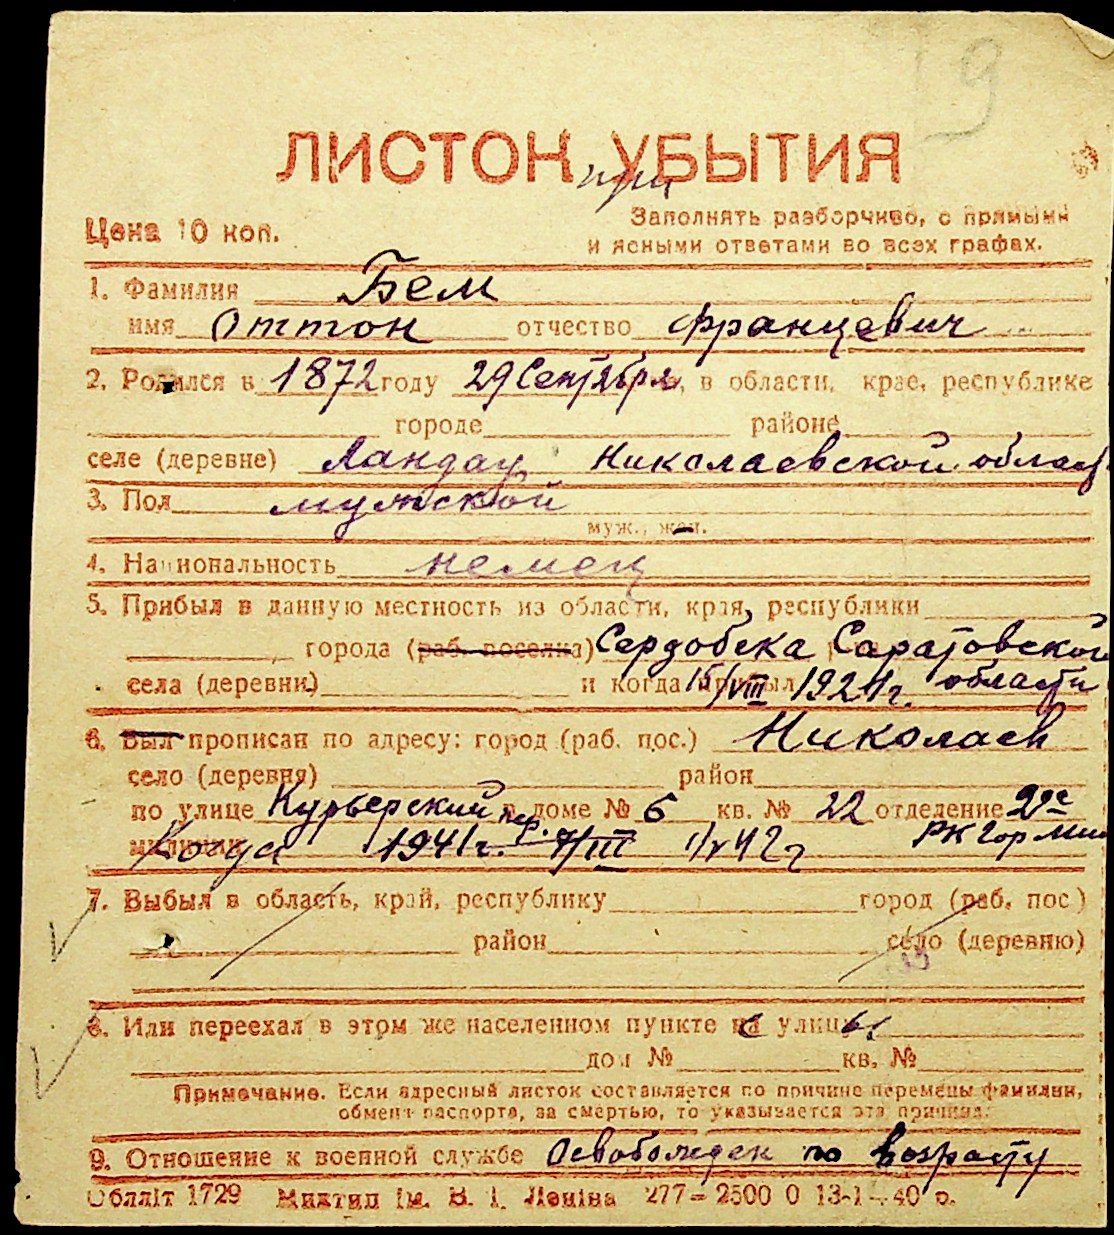 9
ЛИСТОК УБЫТИЯ
при
Цена 10 коп.
Заполнять разборчиво, с прямыми
и ясными ответами во всех графах.
1. Фамилия Бем
имя Оттон отчество Францевич
2. Родился в 1872 году 29 Сентября, в области, крае, республике
городе районе
селе (деревне) Ландау Николаевской област
3. Пол мужской
муж., жен.
4. Национальность немец
5. Прибыл в данную местность из области, края, республики
города (раб. поселка) Сердобска Саратовской
села (деревни) и когда прибыл 15/VIII 1924 г. области
6. Был прописан по адресу: город (раб. пос.) Николаев
село (деревня) район
по улице Курьерский пер. в доме № 6 кв. № 22 отделение 2ое
милиции Когда 1941 г. 7/III 1/V 42 г РК Гор Мил
7. Выбыл в область, край, республику город (раб. пос.)
район село (деревню)
8. Или переехал в этом же населенном пункте на улицу
дом № кв. №
Примечание. Если адресный листок составляется по причине перемены фамилии,
обмена паспорта, за смертью, то указывается эта причина.
9. Отношение к военной службе Освобожден по возрасту
Обліт 1729 Миктип ім. В. І. Леніна 277—2500 0 13-1—40 р.